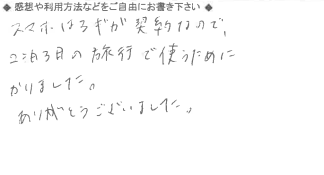 ◆ 感想や利用方法などをご自由にお書き下さい ◆
スマホは3ギガ契約なので、
2泊3日の旅行で使うために
かりました。
ありがとうございました。